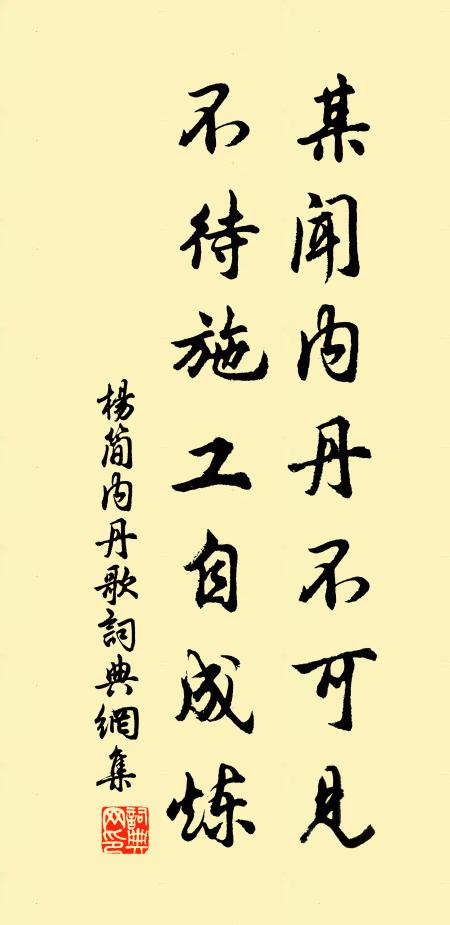 某闻内丹不可见
不待施工自成炼
杨简内丹歌词典網集
詞典网印